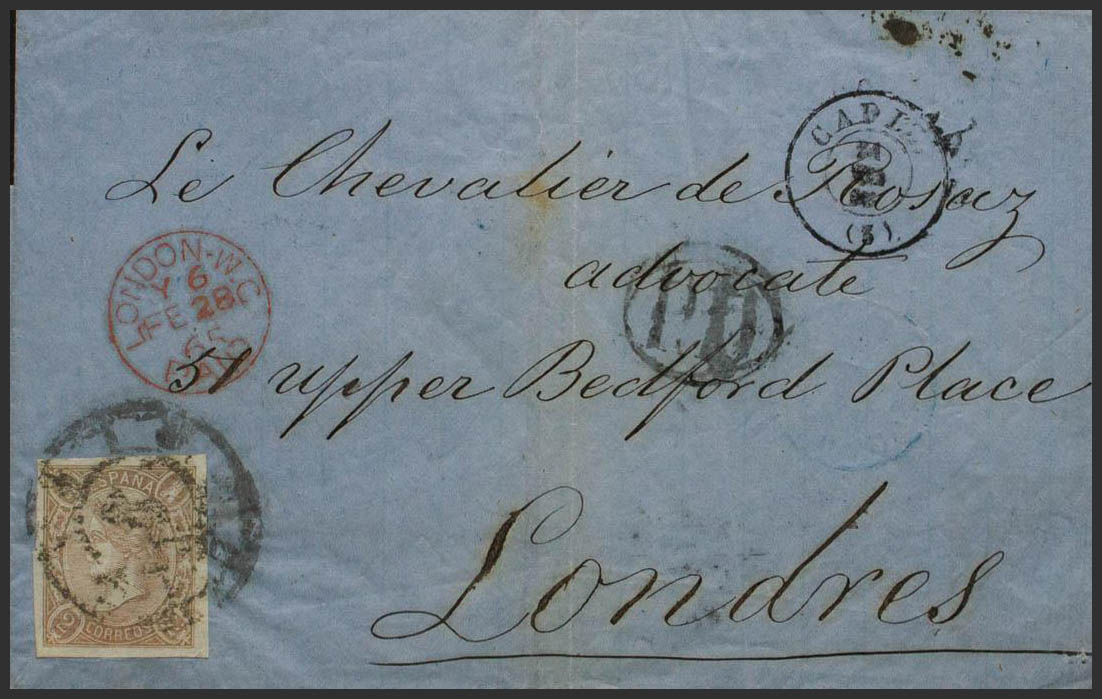 Le Chevalier de Rosaz
advocate
51 upper Bedford Place
Londres
LONDON-W.C
Y 6
FE 28
65
PAID
(3)
P.D.
ESPAÑA
CORREOS